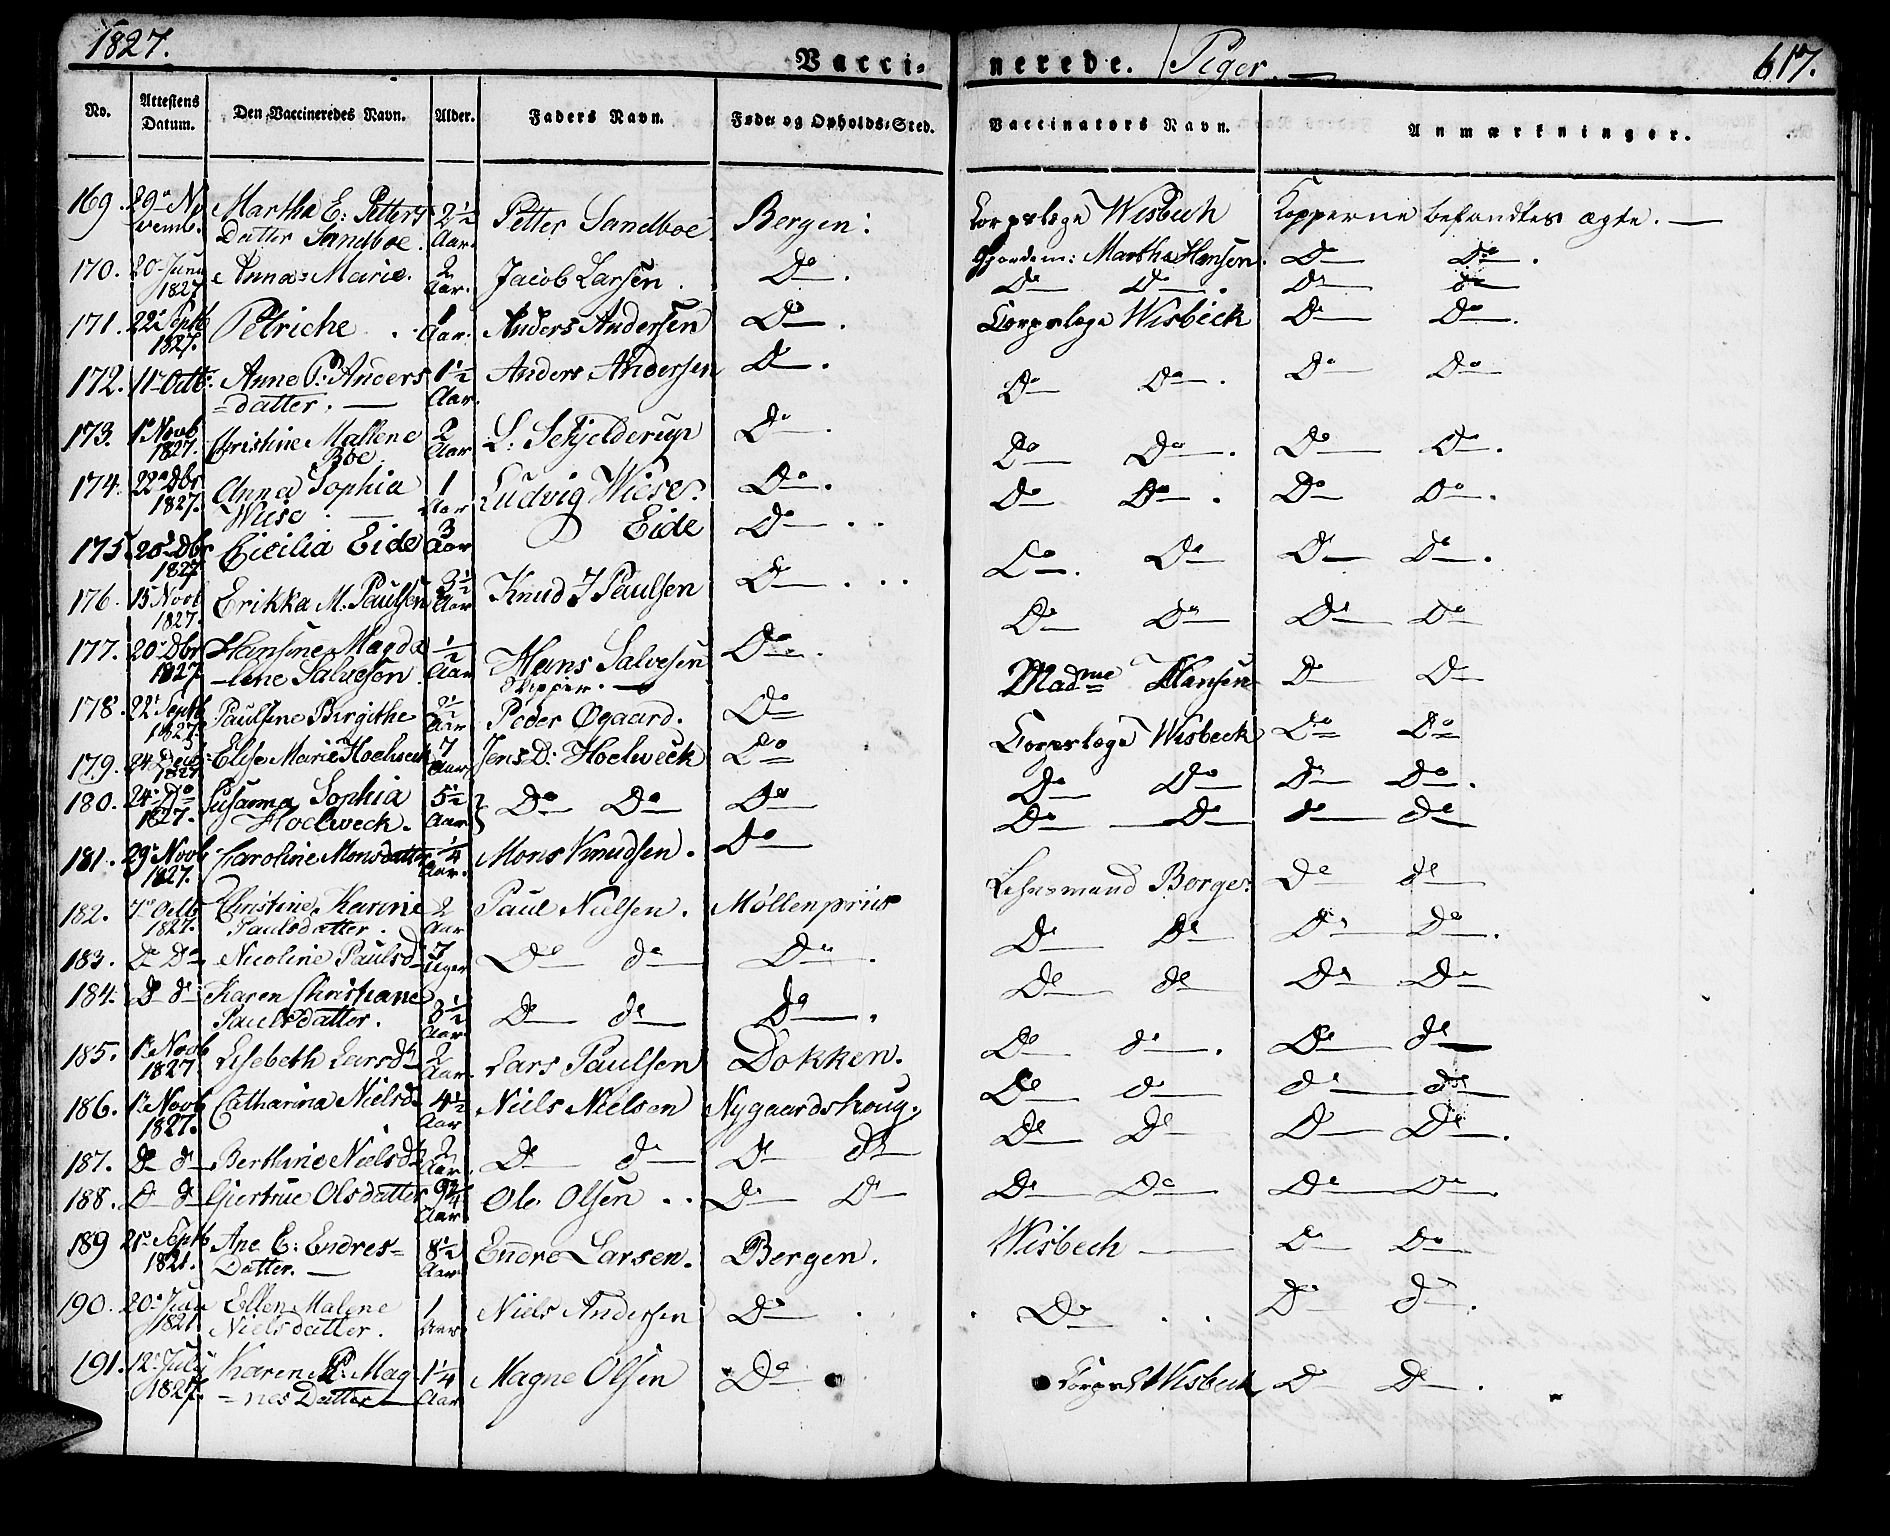 1827.
Vacci- nerede. Piger. 617.
No. Attestens Datum. Den Vaccineredes Navn. Alder. Faders Navn. Føde- og Opholds-Sted. Vaccinators Navn. Anmærkninger.
169. 29de No- Martha E: Petters 2½ Petter Sandboe Bergen: Corpslæge Wisbech Kopperne befandtes ægte.
vemb. Datter Sandboe. Aar.
170. 20 Juni Anna Marie. 2 Jacob Larsen. Do. Gjordem: Martha Hansen Do Do.
1827 Aar. Do Do. Do do
171. 22 Septb Petriche 1 Anders Andersen Do. Corpslæge Wisbeck Do Do.
1827. Aar.
172. 11 Octb. Anne P: Anders 1½ Anders Andersen Do. Do Do. Do Do
=datter. Aar.
173. 1 Novb Christine Mallene 2 L: Schjelderup Do. Do Do. Do Do.
1827. Boe. Aar
174. 22 Dbr Anna Sophia 1 Ludvig Wiese. Do. Do Do. Do Do.
1827. Wiese Aar
175. 20 Dbr Cicilia Eide 3 Eide Do Do. Do Do Do.
1827 Aar
176. 15 Novb Erikka M. Paulsen 3½ Knud J Paulsen Do Do Do Do Do
1827. Aar
177. 20 Dbr Hansine Magda ½ Hans Salvesen Do. Madme Hansen Do Do
1827 -lene Salveson Aar Skipper.
178. 22 Septb Paulsine Birgithe ½ Peder Øgaard. Do Corpslæge Wisbeck Do Do
1827. Aar
179. 24 Elise Marie Hoelweck 7 Jens D: Hoelweck Do Do Do Do Do.
1827 Aar
180. 24 Do Susanna Sophia 5½ Do Do Do Do Do do do
1827. Hoelweck. Aar
181. 29 Novb Caroline Monsdatter ¼ Mons Knudsen. Do Lehnsmand Borge. Do do
1827. Aar.
182. 7 Octb Christine Karine 2 Paul Nielsen. Møllenpriis Do Do Do Do.
1827. Paulsdatter. Aar
183. Do Do Nicoline Paulsd 7 Do do Do. Do do Do Do
Uger
184. Do do Karen Christiane 8½ Do do Do. Do do. Do do
Paulsdatter. Aar
185. 1 Novb Lisebeth Larsd 2 Lars Paulsen Dokken. Do do do do
1827 Aar.
186. 1 Novb Catharina Nielsd 4½ Niels Nielsen Nygaardshoug. Do Do Do Do.
1827. Aar
187. Do do Berthine Nielsd 2 Do do Do do
Aar.
188. Do do Giertrue Olsdatter Ole Olsen Do Do Do Do Do Do.
Aar
189 21 Septb Ane C: Endres= 8½ Endre Larsen. Bergen. Wisbech Do Do
1821. Datter. Aar
190. 20 Juni Ellen Malene 1 Niels Andersen Do Do Do do.
1821 Nielsdatter. Aar
191. 12 July Karen P: Mag 1¼ Magne Olsen Do Corpsl Wisbeck Do Do.
1827. =nes Datter Aar